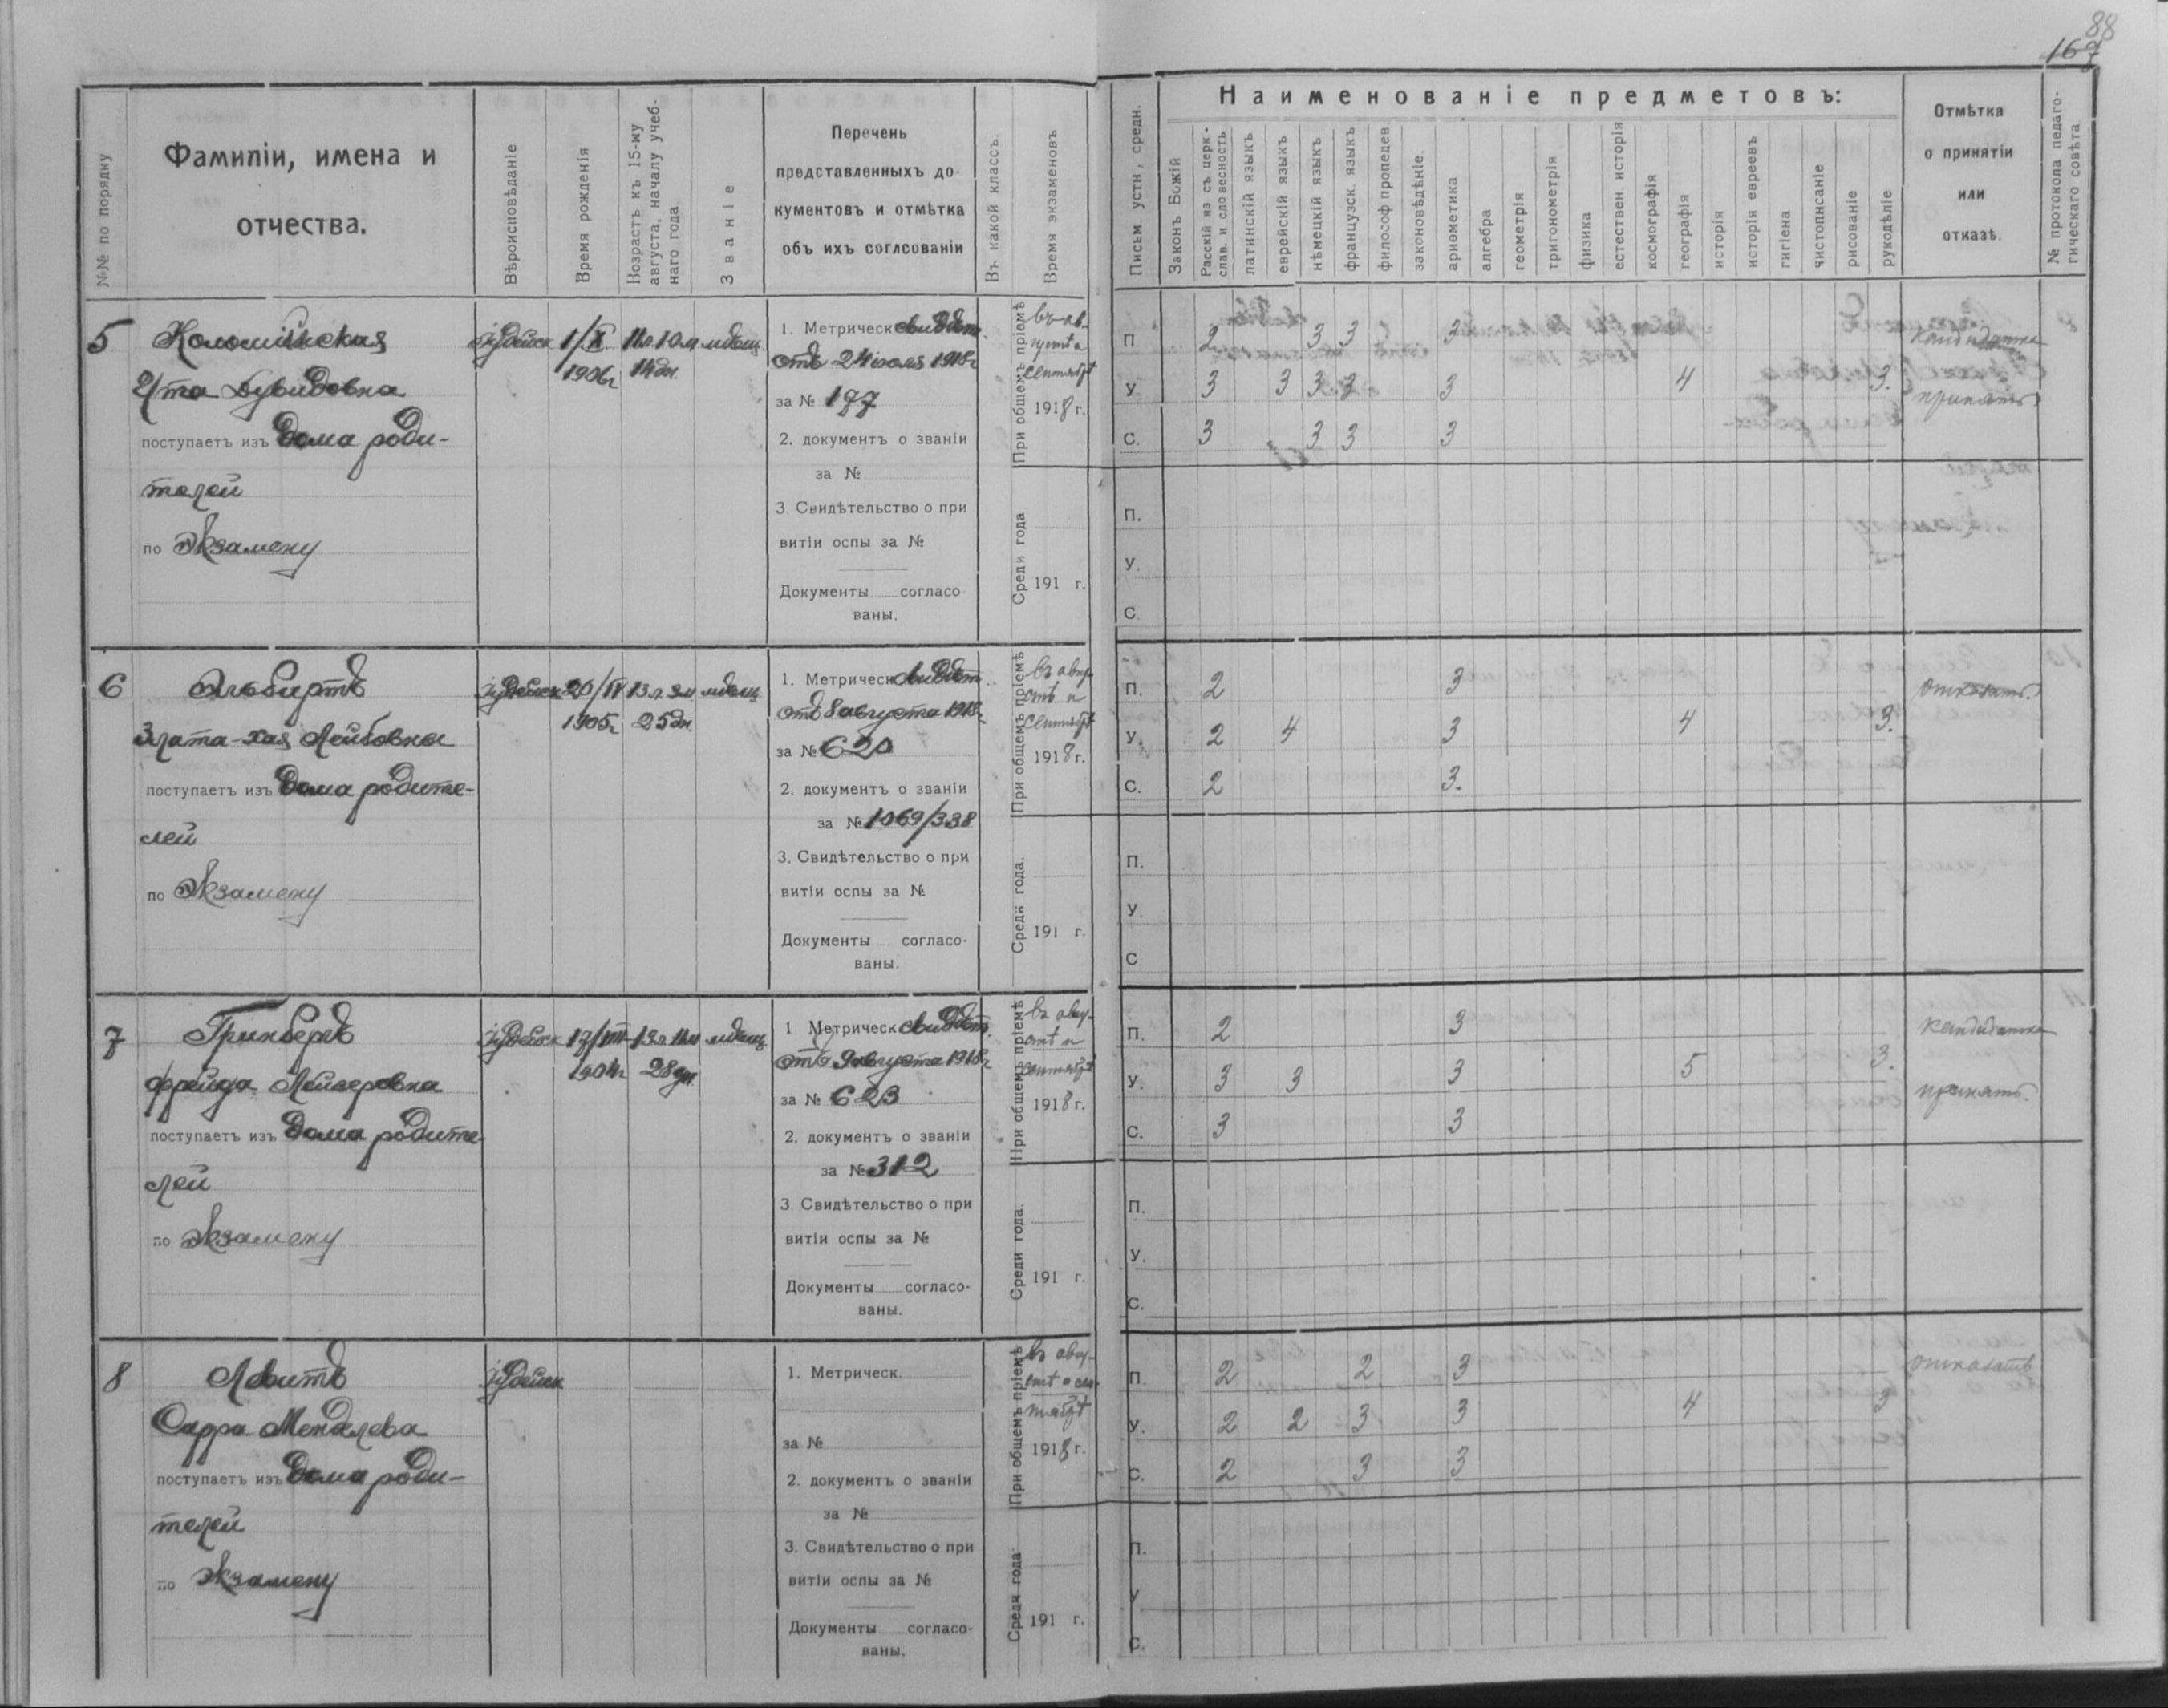 88
167
№№ по порядку
Фамиліи, имена и
отчества.
Вѣроисповѣданіе
Время рожденія
Возрастъ къ 15-му
августа, началу учеб-
наго года.
Званіе
Перечень
представленныхъ до-
кументовъ и отмѣтка
объ ихъ согласованіи
Въ какой классъ.
Время экзаменовъ
Письм устн, средн.
Наименованіе предметовъ:
Законъ Божій
Русскій яз съ церк.-
слав. и словесность
латинскій языкъ
еврейскій языкъ
нѣмецкій языкъ
французск. языкъ
философ пропедев
законовѣдѣніе.
ариѳметика
алгебра
геометрія
тригонометрія
физика
естествен. исторія
космографія
географія
исторія
исторія евреевъ
гигіена
чистописаніе
рисованіе
рукодѣліе
Отмѣтка
о принятіи
или
отказѣ.
№ протокола педаго-
гическаго совѣта
5
Коломійская
Эта Дувидовна
поступаетъ изъ дома роди-
телей
по экзамену
іудейск
1/X
1906г
11л 10м
14дн.
мѣщ.
1. Метрическ свидѣт.
отъ 24 іюля 1918г
за № 177
2. документъ о званіи
за №
3. Свидѣтельство о при
витіи оспы за №
Документы согласо
ваны.
При общемъ пріемѣ
въ ав-
густѣ
сентябрѣ
1918 г.
Среди года
191 г.
П 2 3 3 3
У 3 3 3 3 3 4 3.
С. 3 3 3 3
кандидатка
принять
П.
У.
С
6
Альбертъ
Злата-Хая Лейбовны
поступаетъ изъ дома родите-
лей
по экзамену
іудейск
20/IV
1905г
13л. 3м
25дн.
мѣщ.
1. Метрическ свидѣт.
отъ 8 августа 1918г
за № 620
2. документъ о званіи
за № 1069/338
3. Свидѣтельство о при
витіи оспы за №
Документы согласо-
ваны.
При общемъ пріемѣ
въ авгу-
стѣ и
сентябрѣ
1918 г.
Среди года.
191 г.
П. 2 3
У. 2 4 3 4 3.
С. 2 3.
отказать.
П.
У.
С
7
Гринбергъ
Фрейда Лейзеровна
поступаетъ изъ дома родите-
лей
по экзамену
іудейск
17/VIII
1904г
13л. 11м
28дн.
мѣщ
1 Метрическ свидѣт.
отъ 9 августа 1918г
за № 623
2. документъ о званіи
за № 312
3 Свидѣтельство о при
витіи оспы за №
Документы согласо-
ваны.
При общемъ пріемѣ
въ авгу-
стѣ и
сентябрѣ
1918 г.
Среди года.
191 г.
П. 2 3
У. 3 3 3 5 3.
С. 3 3
кандидатка
принять.
П.
У.
С.
8
Левитъ
Сарра Менделева
поступаетъ изъ дома роди-
телей
по экзамену
іудейск
1. Метрическ.
за №
2. документъ о званіи
за №
3. Свидѣтельство о при
витіи оспы за №
Документы согласо-
ваны.
При общемъ пріемѣ
въ авгу-
стѣ и сен-
тябрѣ
1918 г.
Среди года
191 г.
П. 2 2 3
У. 2 2 3 3 4 3
С. 2 3 3
отказать
П.
У
С.